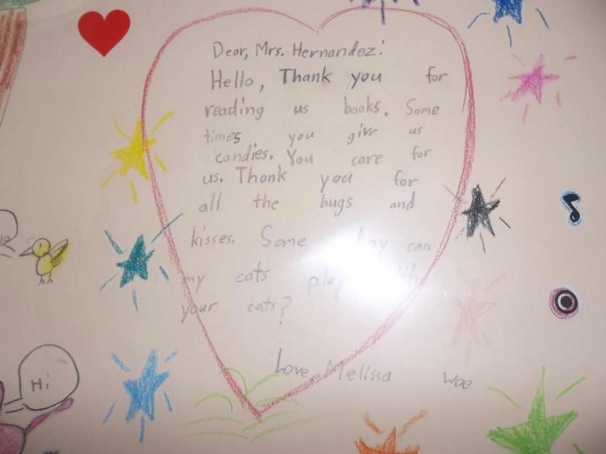 Dear, Mrs. Hernandez:
Hello, Thank you for
reading us books. Some
times you give us
candies. You care for
us. Thank you for
all the hugs and
kisses. Some day can
my cats play with
your cats?
Love, Melissa Woo
Hi